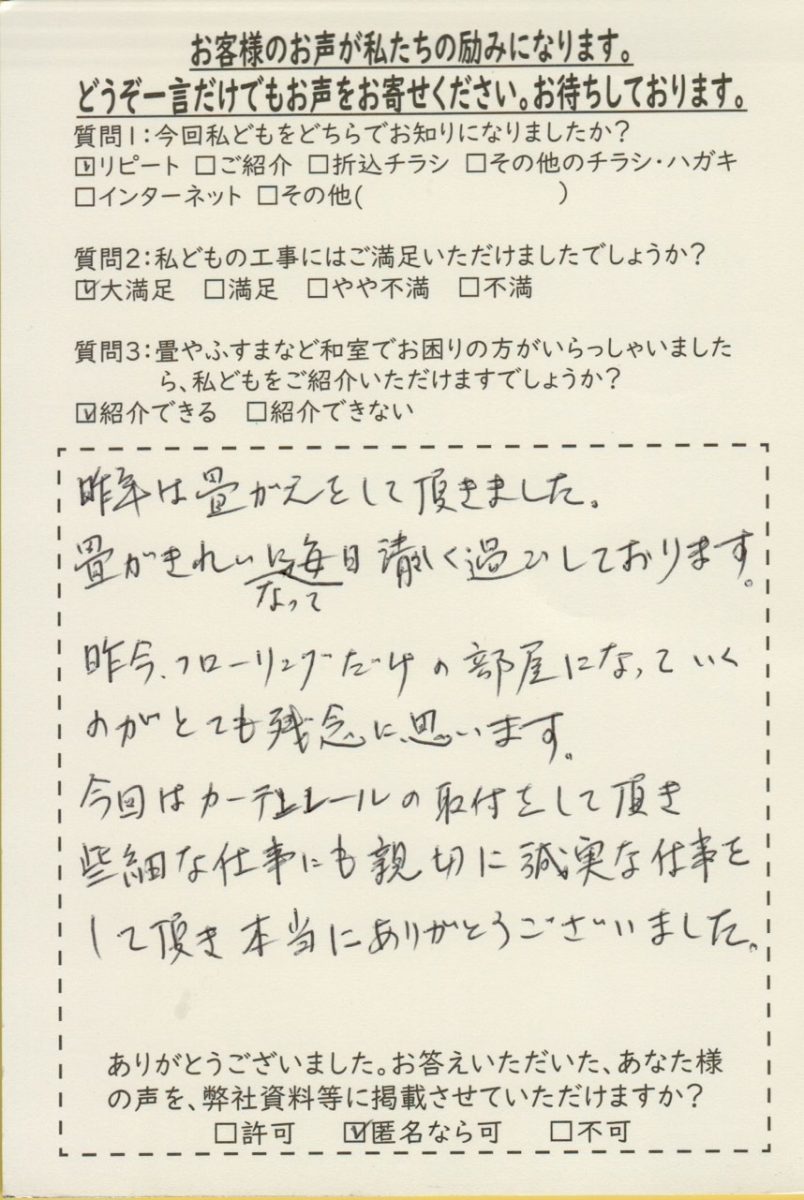 お客様のお声が私たちの励みになります。
どうぞ一言だけでもお声をお寄せください。お待ちしております。
質問1:今回私どもをどちらでお知りになりましたか?
☑リピート □ご紹介 □折込チラシ □その他のチラシ・ハガキ
□インターネット □その他( )
質問2:私どもの工事にはご満足いただけましたでしょうか?
☑大満足 □満足 □やや不満 □不満
質問3:畳やふすまなど和室でお困りの方がいらっしゃいました
ら、私どもをご紹介いただけますでしょうか?
☑紹介できる □紹介できない
昨年は畳がえをして頂きました。
畳がきれいに毎日清しく過ごしております。
なって
昨今、フローリングだけの部屋になっていく
のがとても残念に思います。
今回はカーテンレールの取付をして頂き
些細な仕事にも親切に誠実な仕事を
して頂き本当にありがとうございました。
ありがとうございました。お答えいただいた、あなた様
の声を、弊社資料等に掲載させていただけますか?
□許可 ☑匿名なら可 □不可